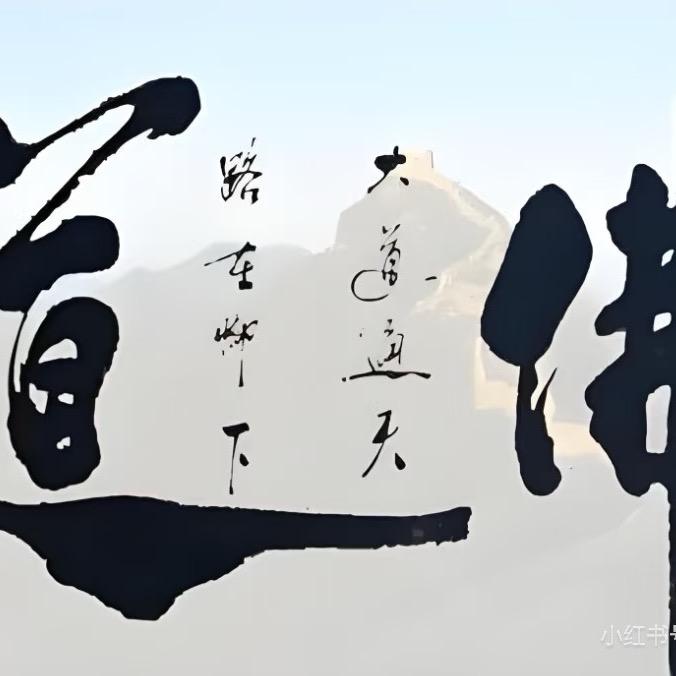 佛
大道通天
路在脚下
道
小红书号